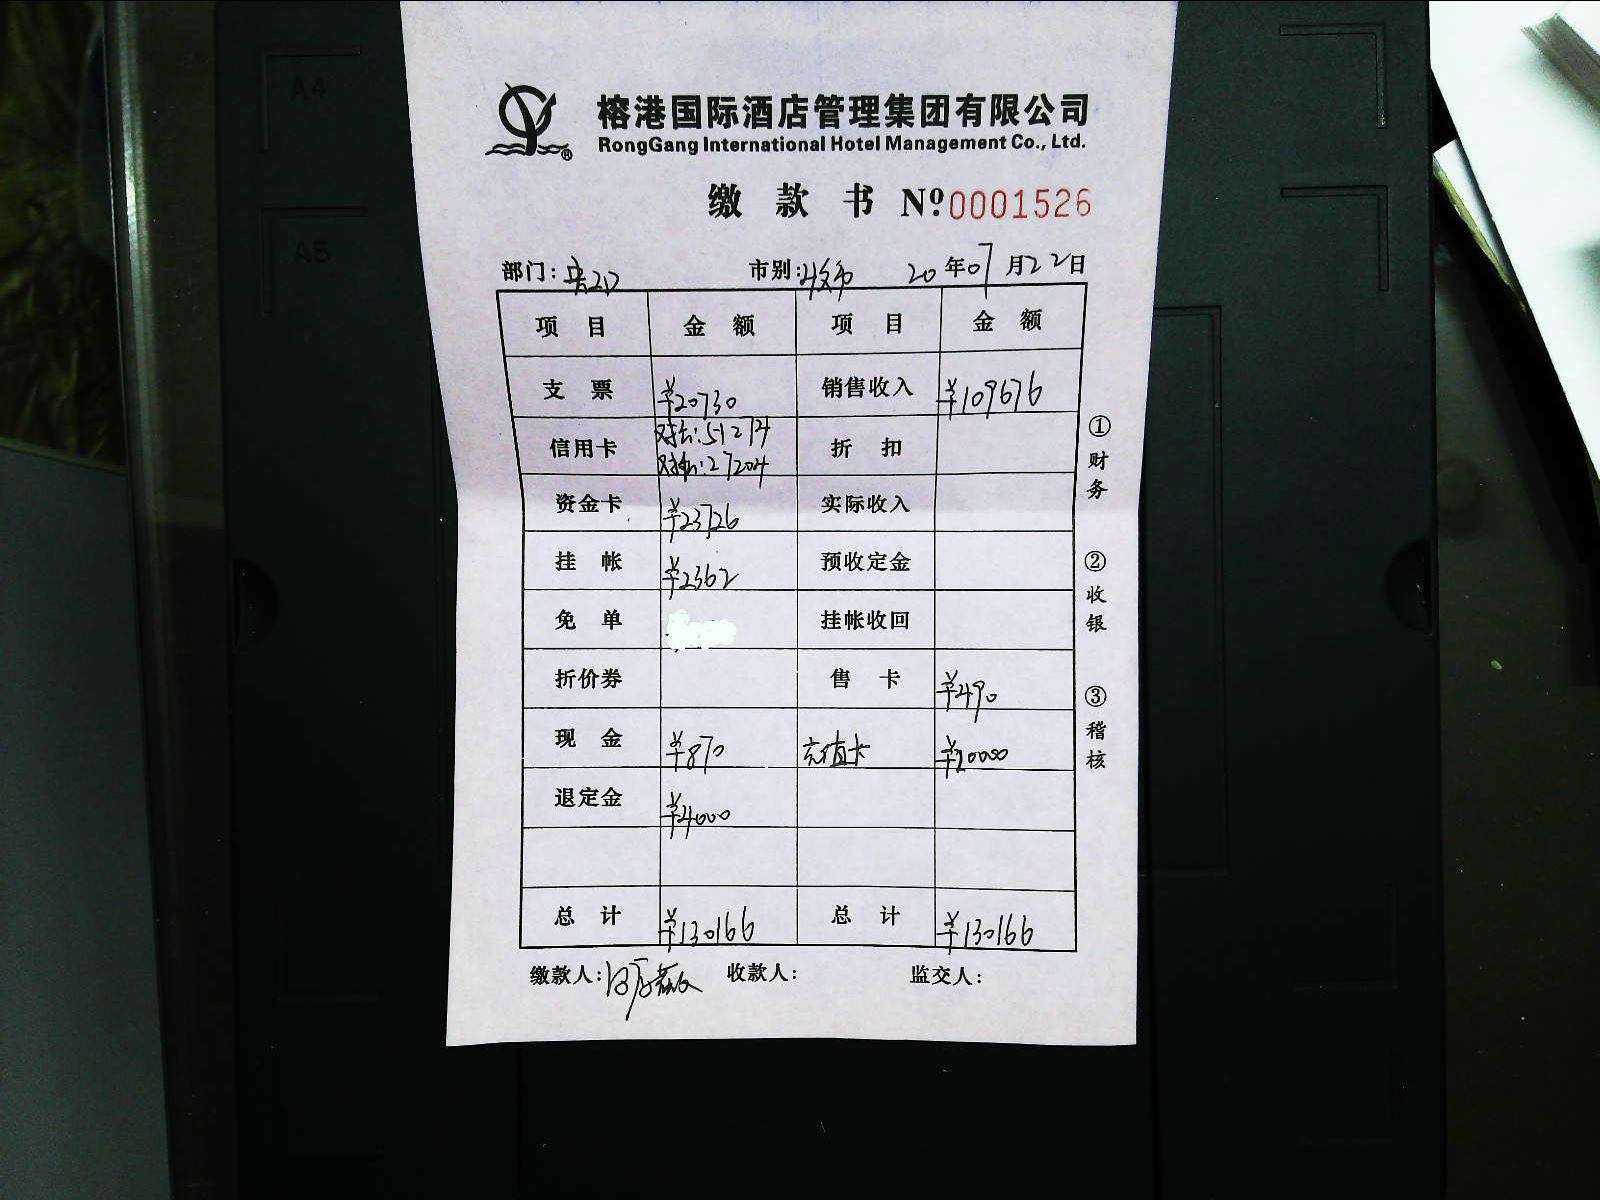 A4
A5
榕港国际酒店管理集团有限公司
RongGang International Hotel Management Co., Ltd.
®
缴 款 书 Nº 0001526
部门: 市别: 20 年 07 月 22 日
项 目 金 额 项 目 金 额
支 票 ¥20730 销售收入 ¥109676
信用卡 51274 折 扣
27204
资金卡 ¥23726 实际收入
挂 帐 ¥2362 预收定金
免 单 挂帐收回
折价券 售 卡 ¥490
现 金 ¥870 充值卡 ¥20000
退定金 ¥4000
总 计 ¥130166 总 计 ¥130166
缴款人: 收款人: 监交人:
①财务
②收银
③稽核